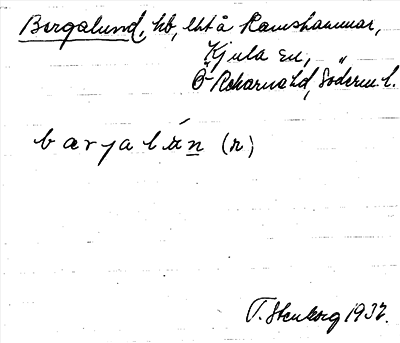 Bergalund, hb, lht å Ramshammar,
Kjula sn,
Ö Rekarne hd, Söderm l.
bærjalún (n)
T. Stenborg 1937.